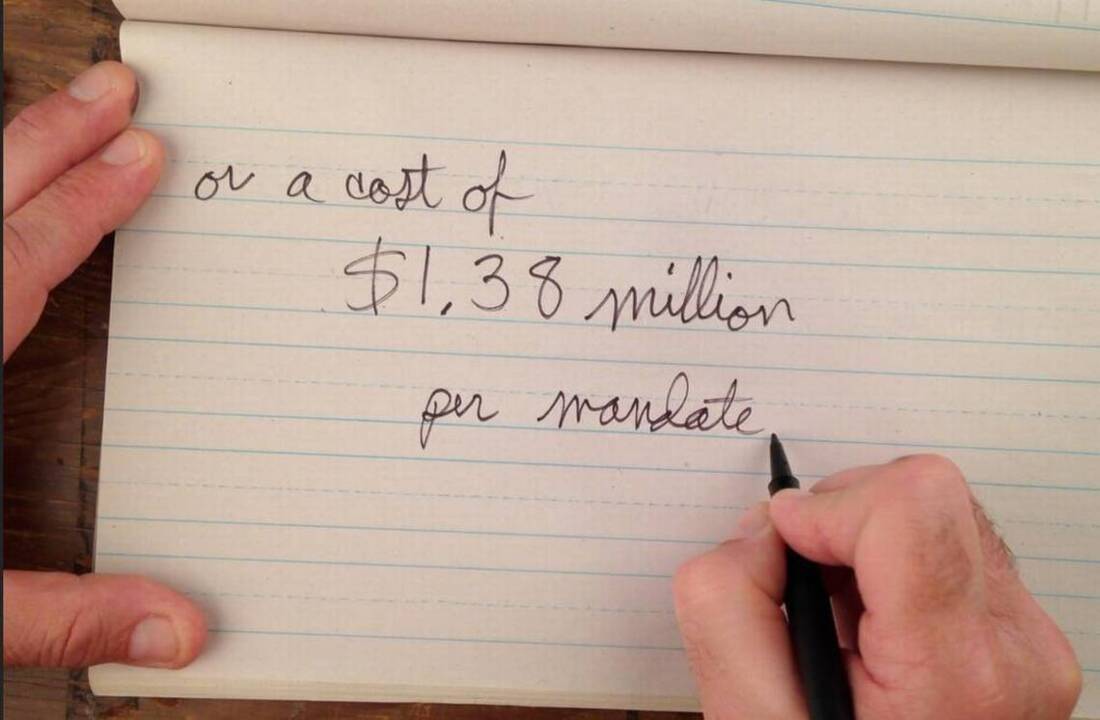 or a cost of
$1.38 million
per mandate